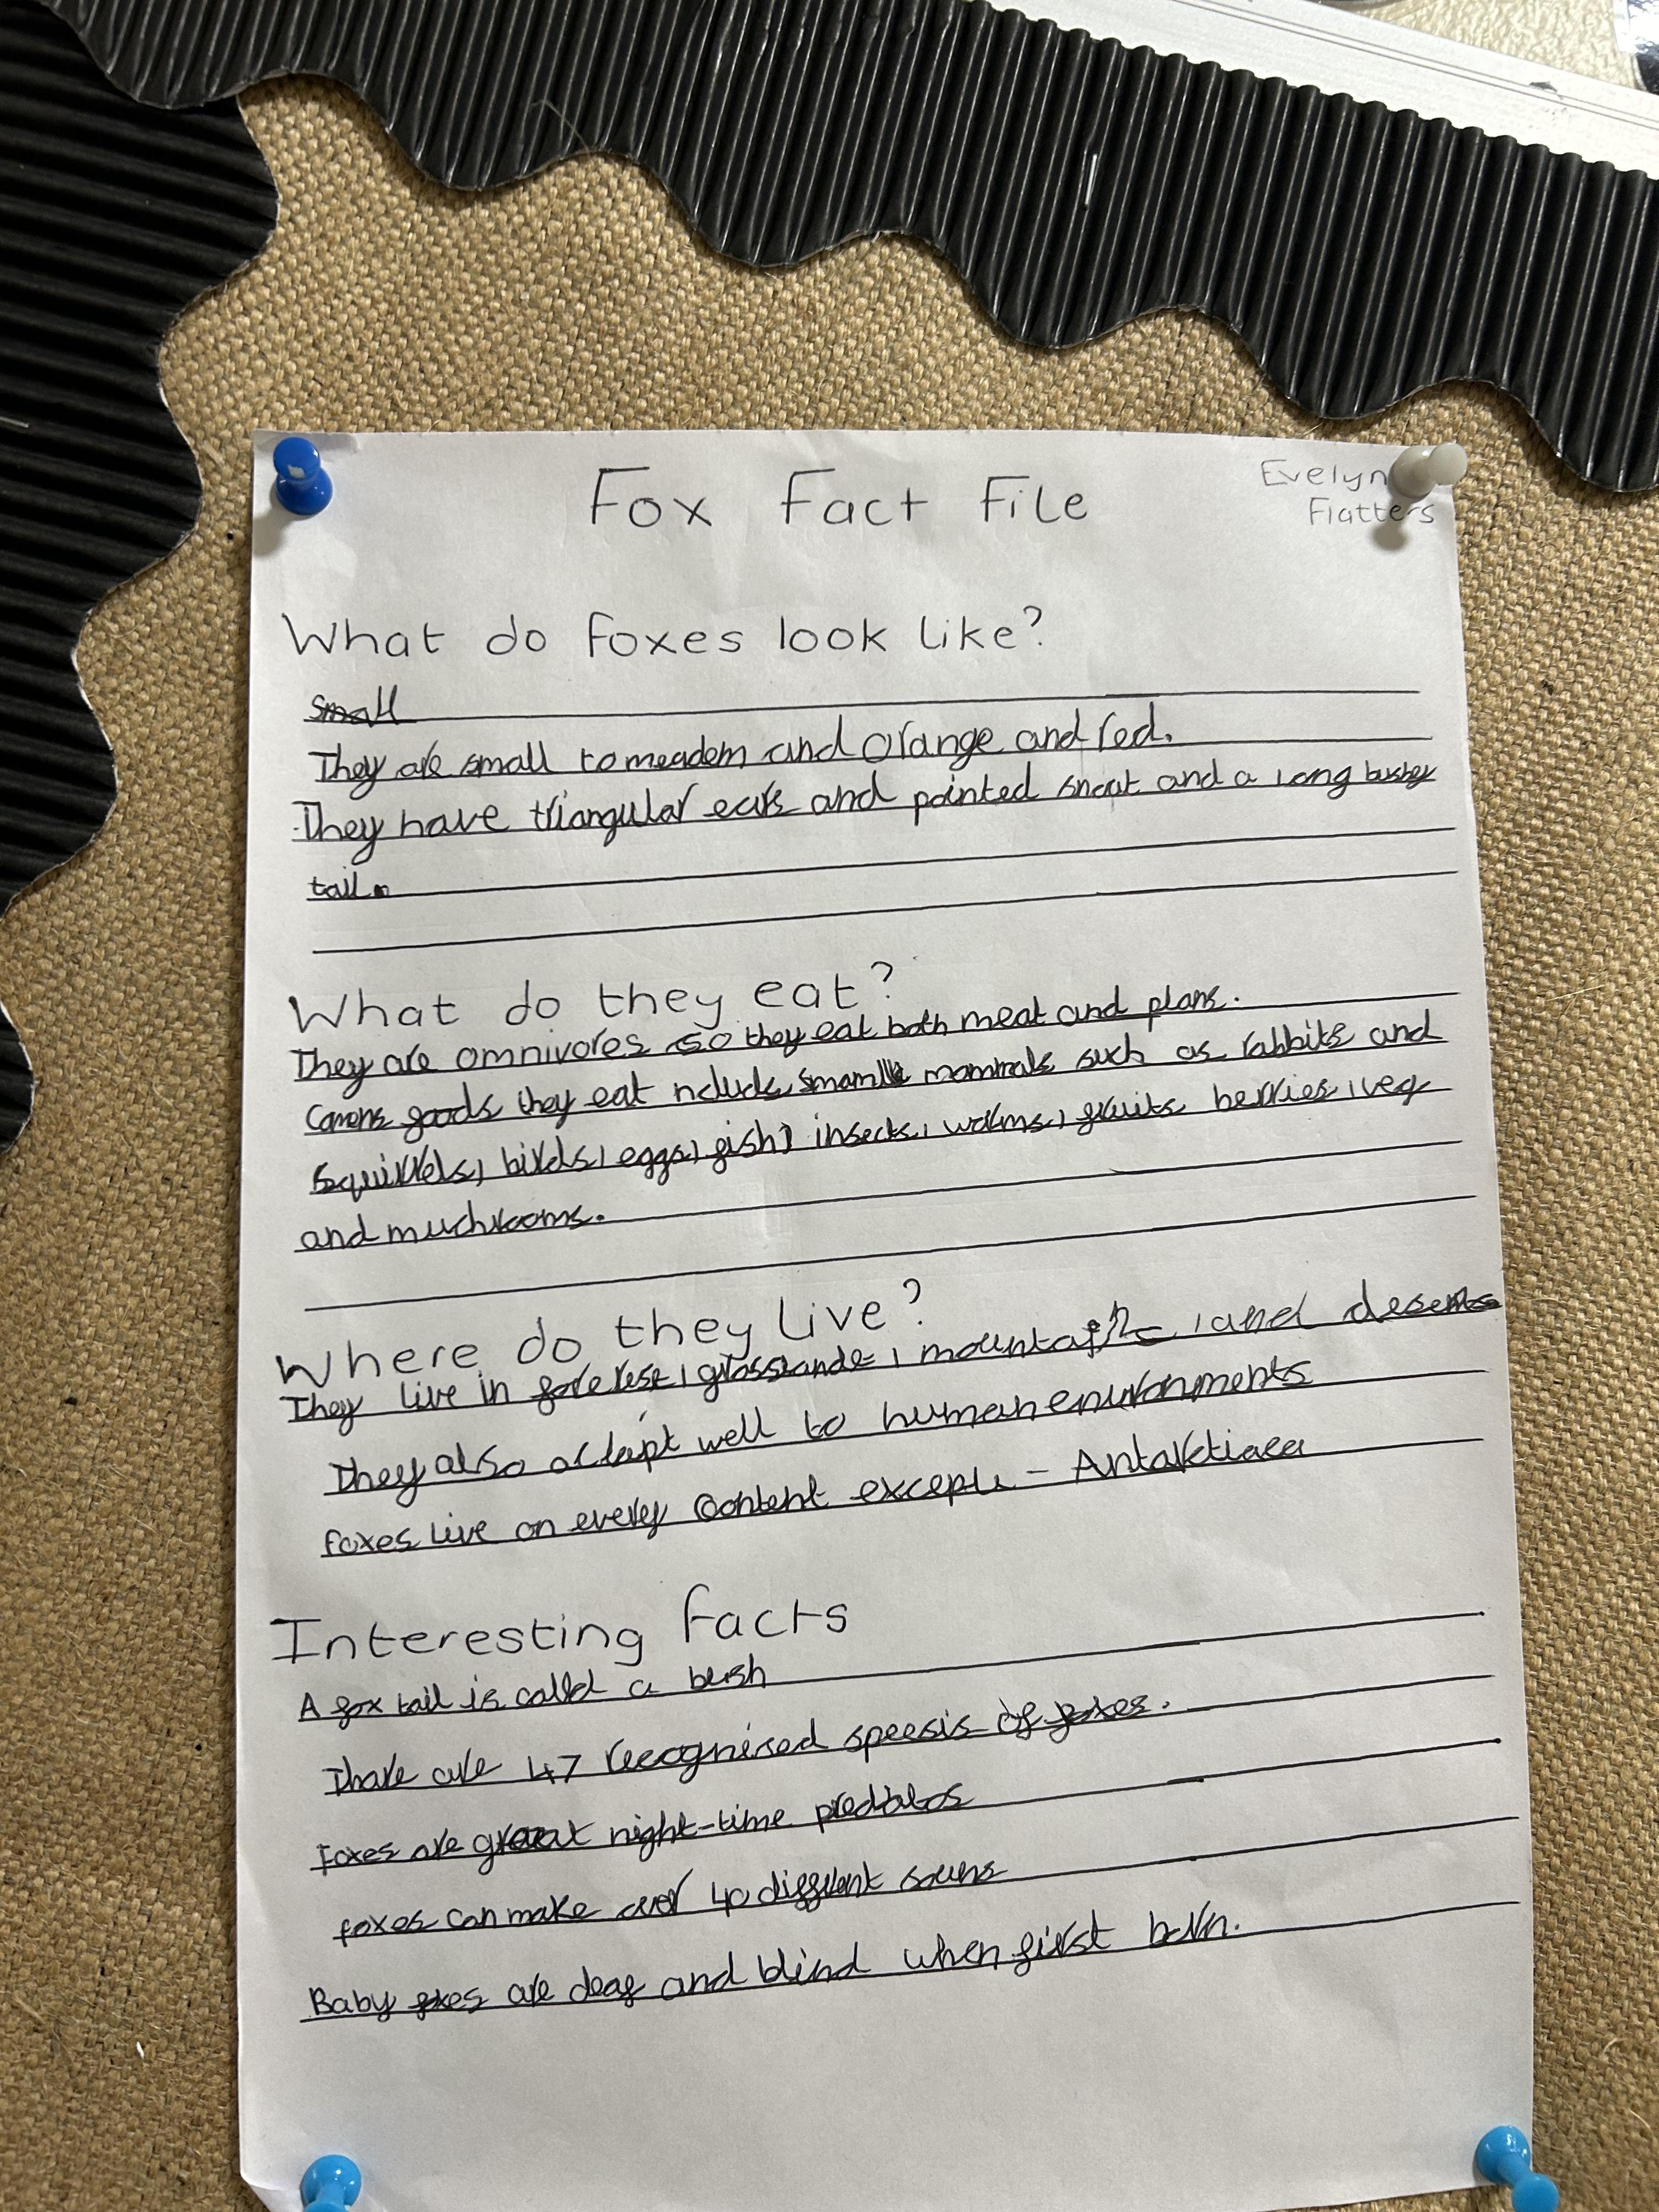 Fox Fact File
Evelyn
Flatters
What do foxes look like?
Small
They are small to meadem and orange and red.
They have triangular ears and pointed snout and a long bushy
tail.
What do they eat?
They are omnivores so they eat both meat and plans.
goods they eat nclude small mammals such as rabbits and
Squirrels, birds, eggs, fish, insects, worms, fruits berries, veg
and muchrooms.
Where do they live?
They live in grasslands, mountains, and deserts
They also adapt well to human environments
foxes live on every content except - Antarktica
Interesting facts
A fox tail is called a bush
Thare are 47 recognised speesis of foxes.
Foxes are great night-time predators
foxes can make over 40 different souns
Baby foxes are deaf and blind when first born.